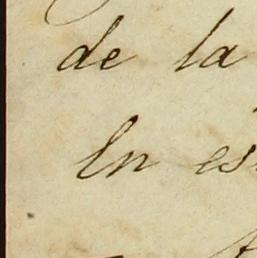 de la
En es